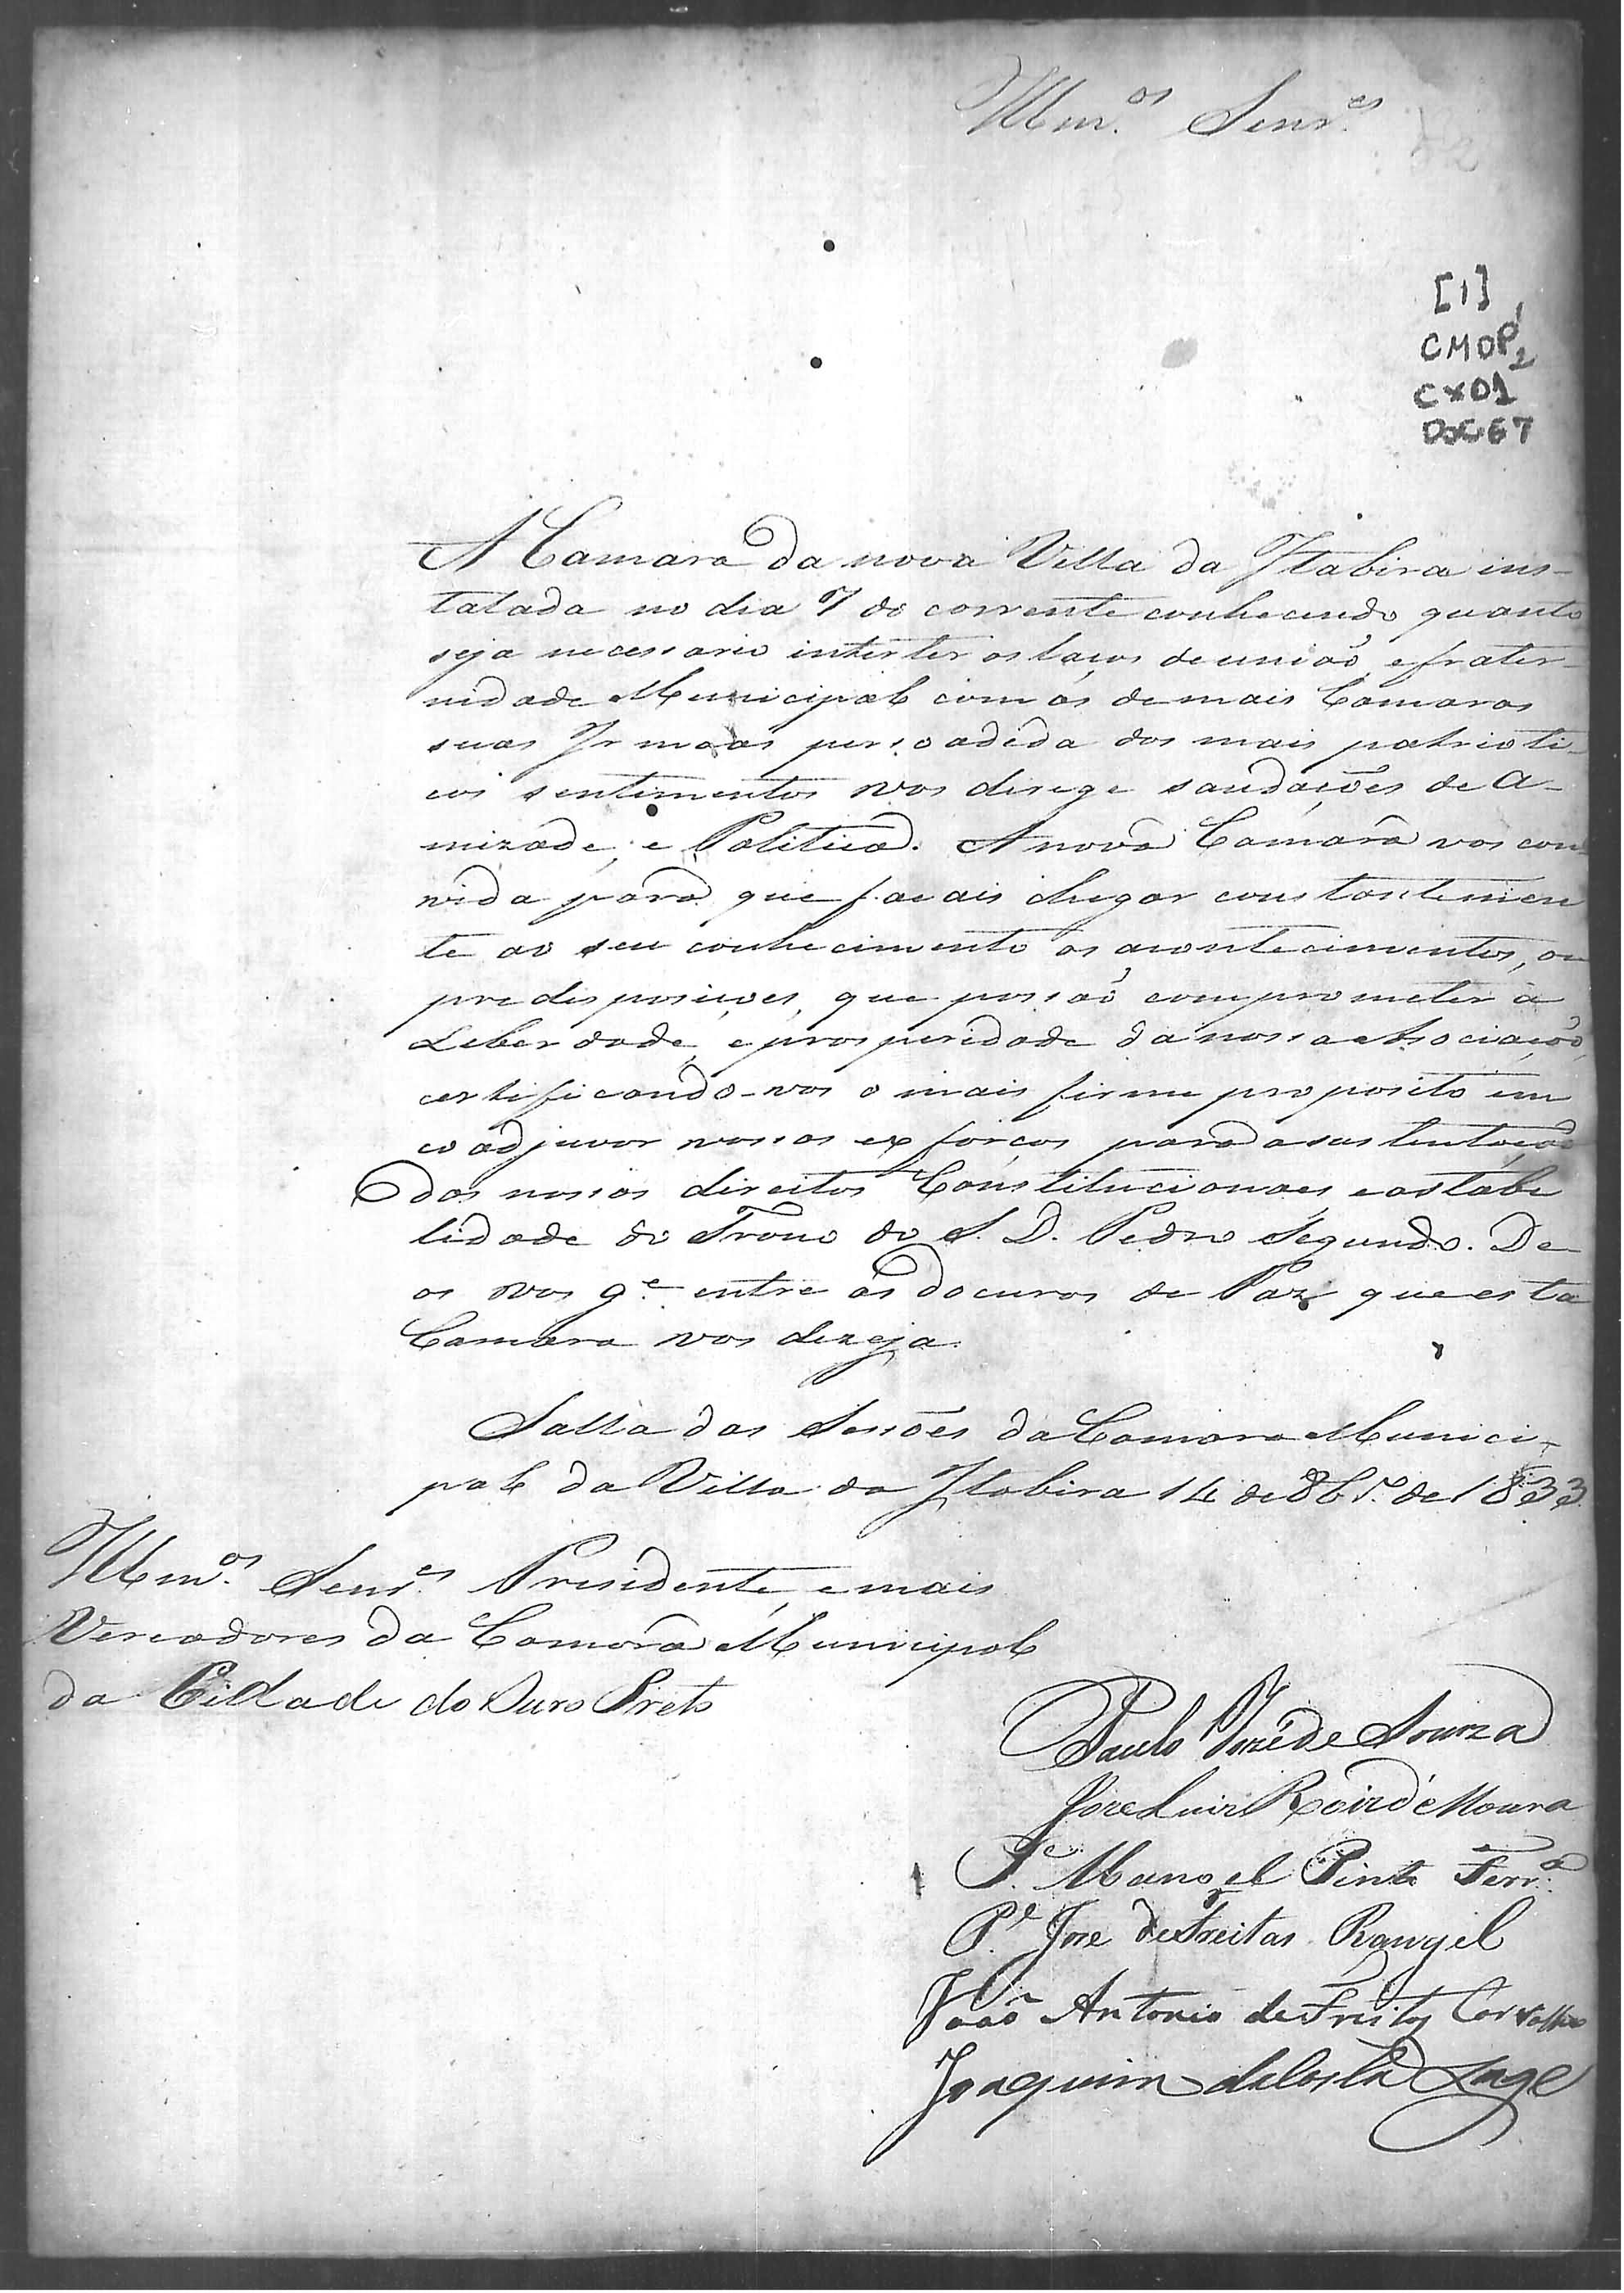 Illm.os Senr.es
[1]
CMOP 1/2
CX01
DOC67
A Camara da nova Villa da Itabira ins-
talada no dia 7 do corrente conhecendo quanto
seja necessario interter os laços de união, e frater-
nidade Municipal com as de mais Camaras
suas Irmãas persoadida dos mais patrioti-
cos sentimentos vos dirige saudações de A-
mizade, e Politica. A nova Camara vos con-
vida para que façais chegar constantemen
te ao seu conhecimento os acontecimentos, ou
predisposições, que possão comprometer a
Liberdade, e prosperidade da nossa Associação,
certificando-vos o mais firme proposito em
coadjuvar vossos exforços para a sustentação
dos nossos direitos Constitucionaes e a stabe
lidade do Trono do S. D. Pedro Segundo. De-
os vos g.e entre as doçuras de Paz que esta
Camara vos dezeja.
Salla das Sessões da Camara Munici-
pal da Villa da Itabira 14 de 8br.o de 1833
Illm.os Senr.es Presidente, e mais
Vereadores da Camara Municipal
da Cidade do Ouro Preto
Paulo Jozé de Souza
Joze Luiz Roiz de Moura
P.e Manoel Pinto Ferr.a
P.e Joze de Freitas Rangel
João Antonio de Freitas Carvalho
Joaquim da Costa Lage